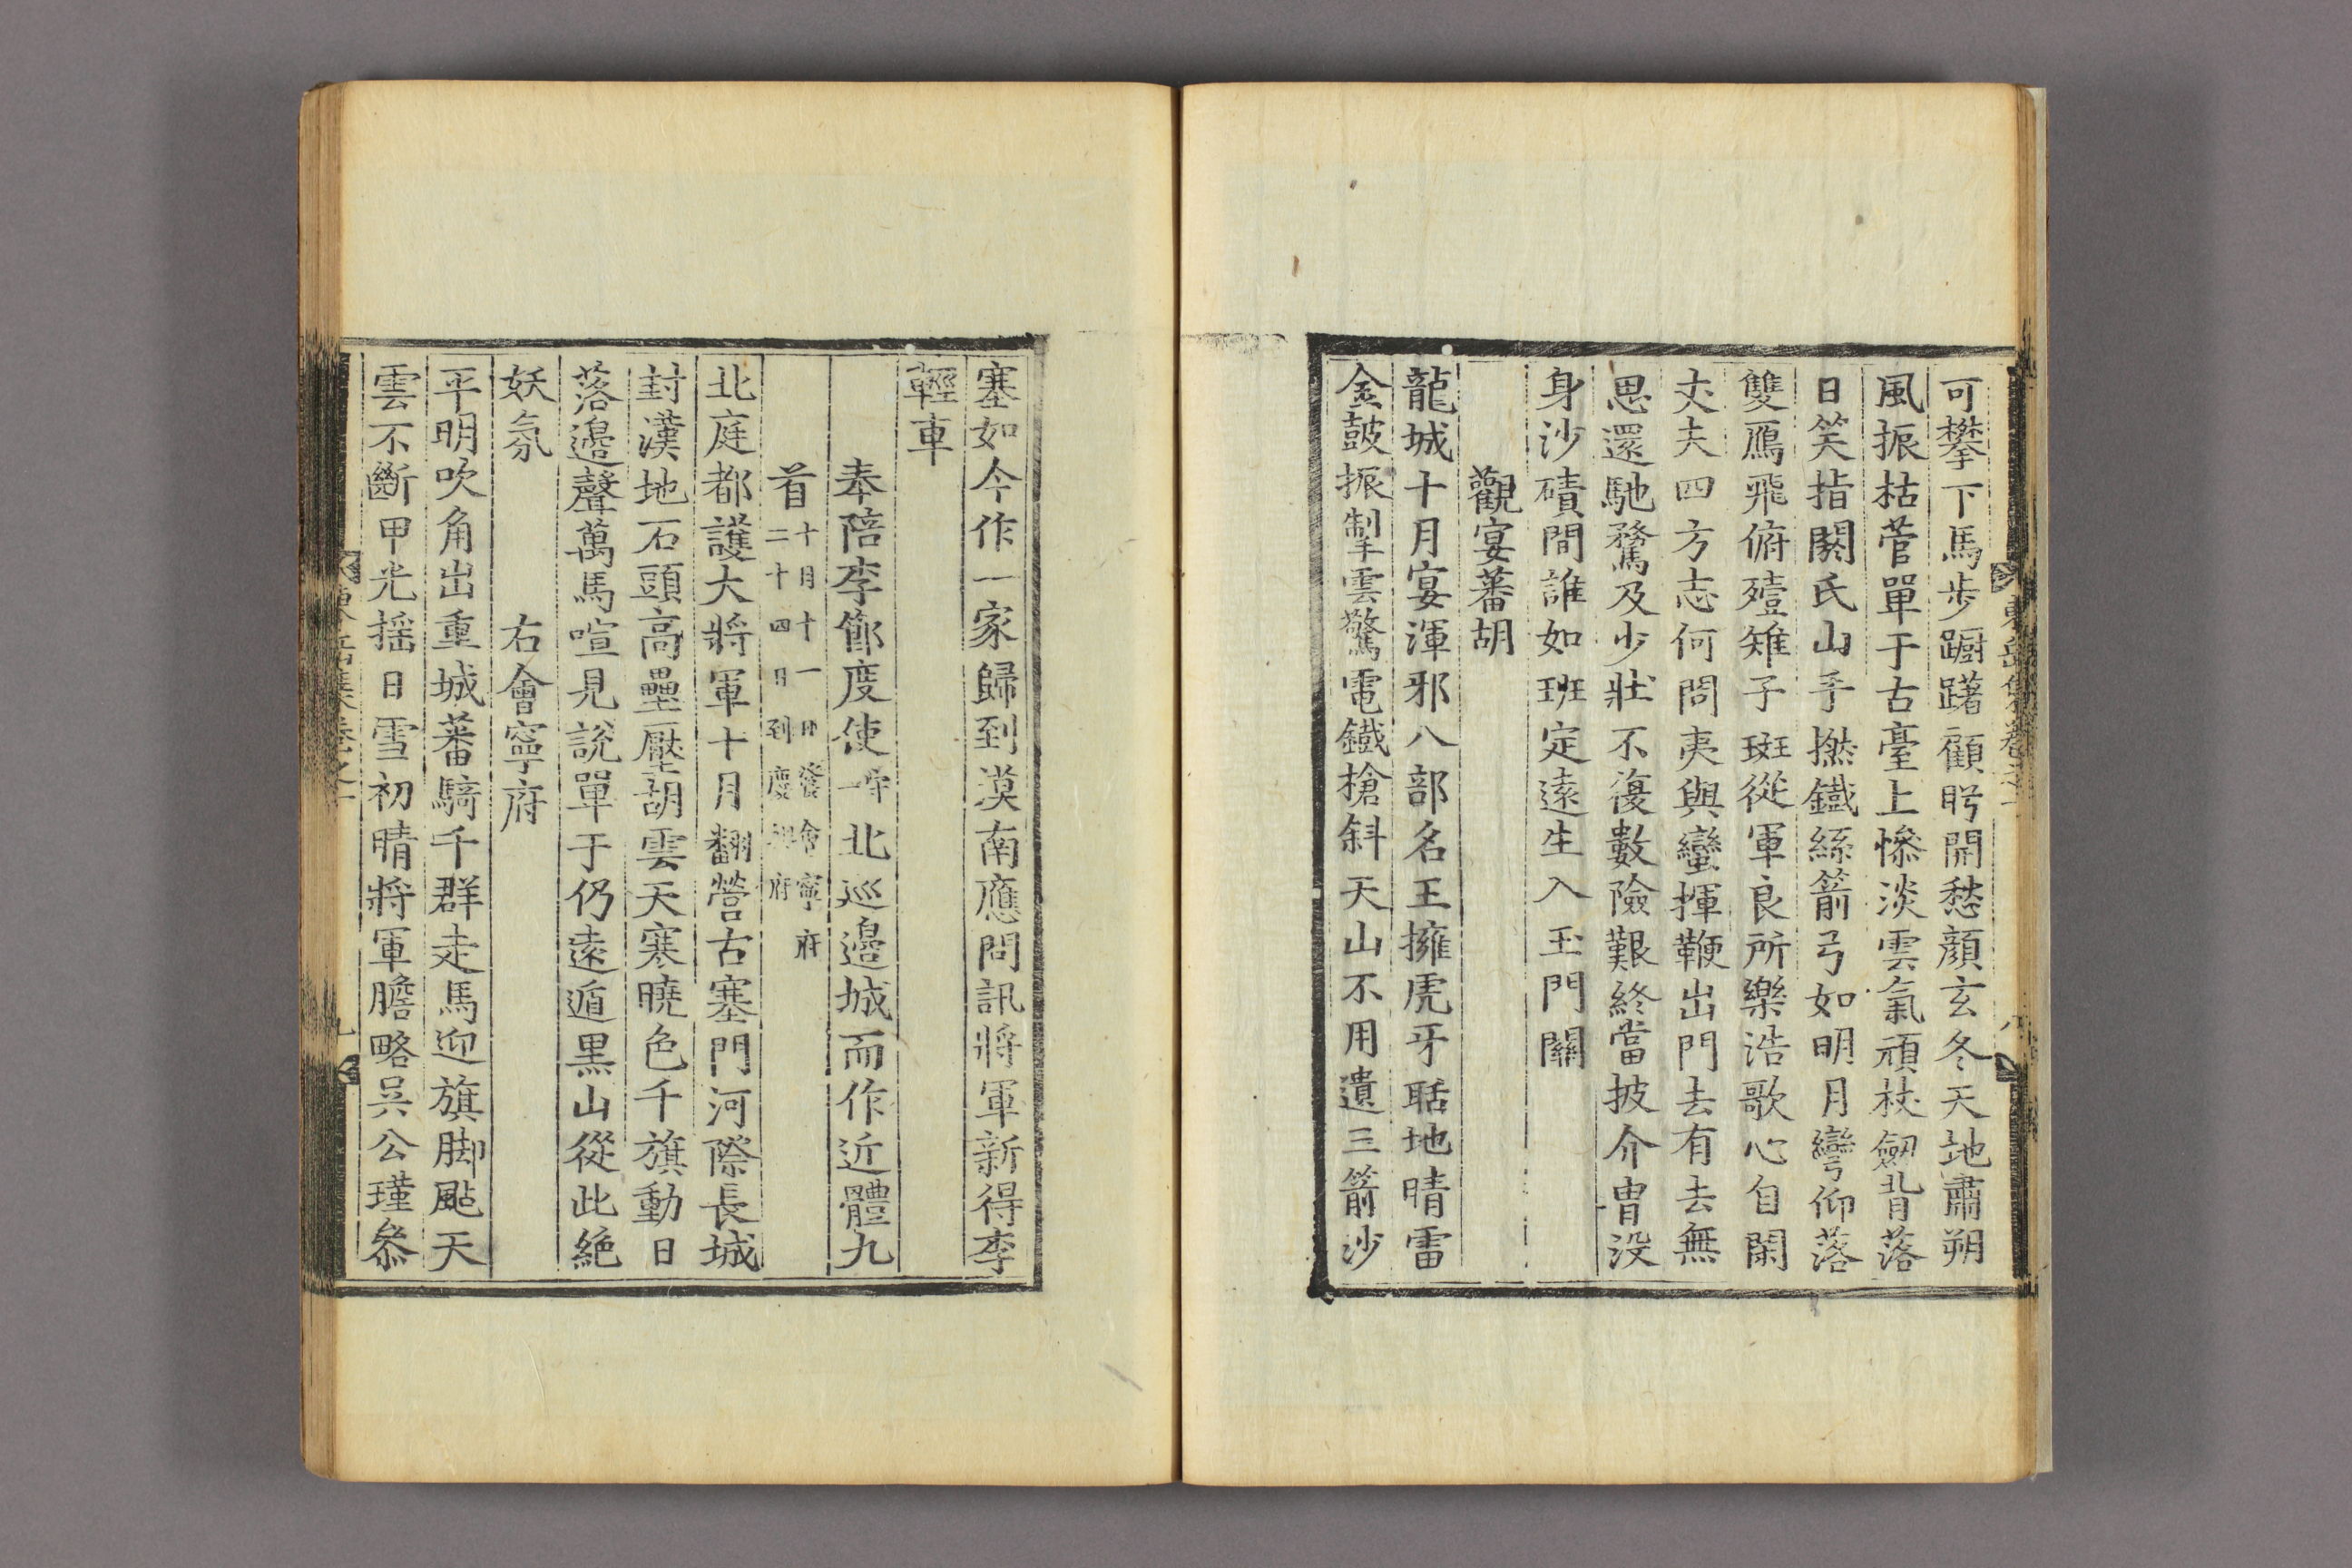 可攀下馬步踟躇顧眄開愁顔玄冬天地肅朔
風振枯菅單于古臺上慘淡雲氣頑杖劒背落
日笑指閼氏山手撚鐵絲箭弓如明月彎仰落
雙鴈飛俯殪雉子斑從軍良所樂浩歌心自閑
丈夫四方志何問夷與蠻揮鞭出門去有去無
思還馳騖及少壯不復數險艱終當披介冑没
身沙磧間誰如班定遠生入玉門關
觀宴蕃胡
龍城十月宴渾邪八部名王擁虎牙聒地晴雷
金鼓振掣雲驚電鐵槍斜天山不用遺三箭沙
塞如今作一家歸到漠南應問訊將軍新得李
輕車
奉陪李節度使 北巡邊城而作近體九
首
十月十一日發會寧府
二十四日到慶 府
北庭都護大將軍十月翻營古塞門河際長城
封漢地石頭高壘壓胡雲天寒曉色千旗動日
落邉聲萬馬喧見說單于仍遠遁黒山從此絶
妖氛
右會寧府
平明吹角出重城蕃騎千群走馬迎旗脚颭天
雲不斷甲光揺日雪初晴將軍膽略吳公瑾叅